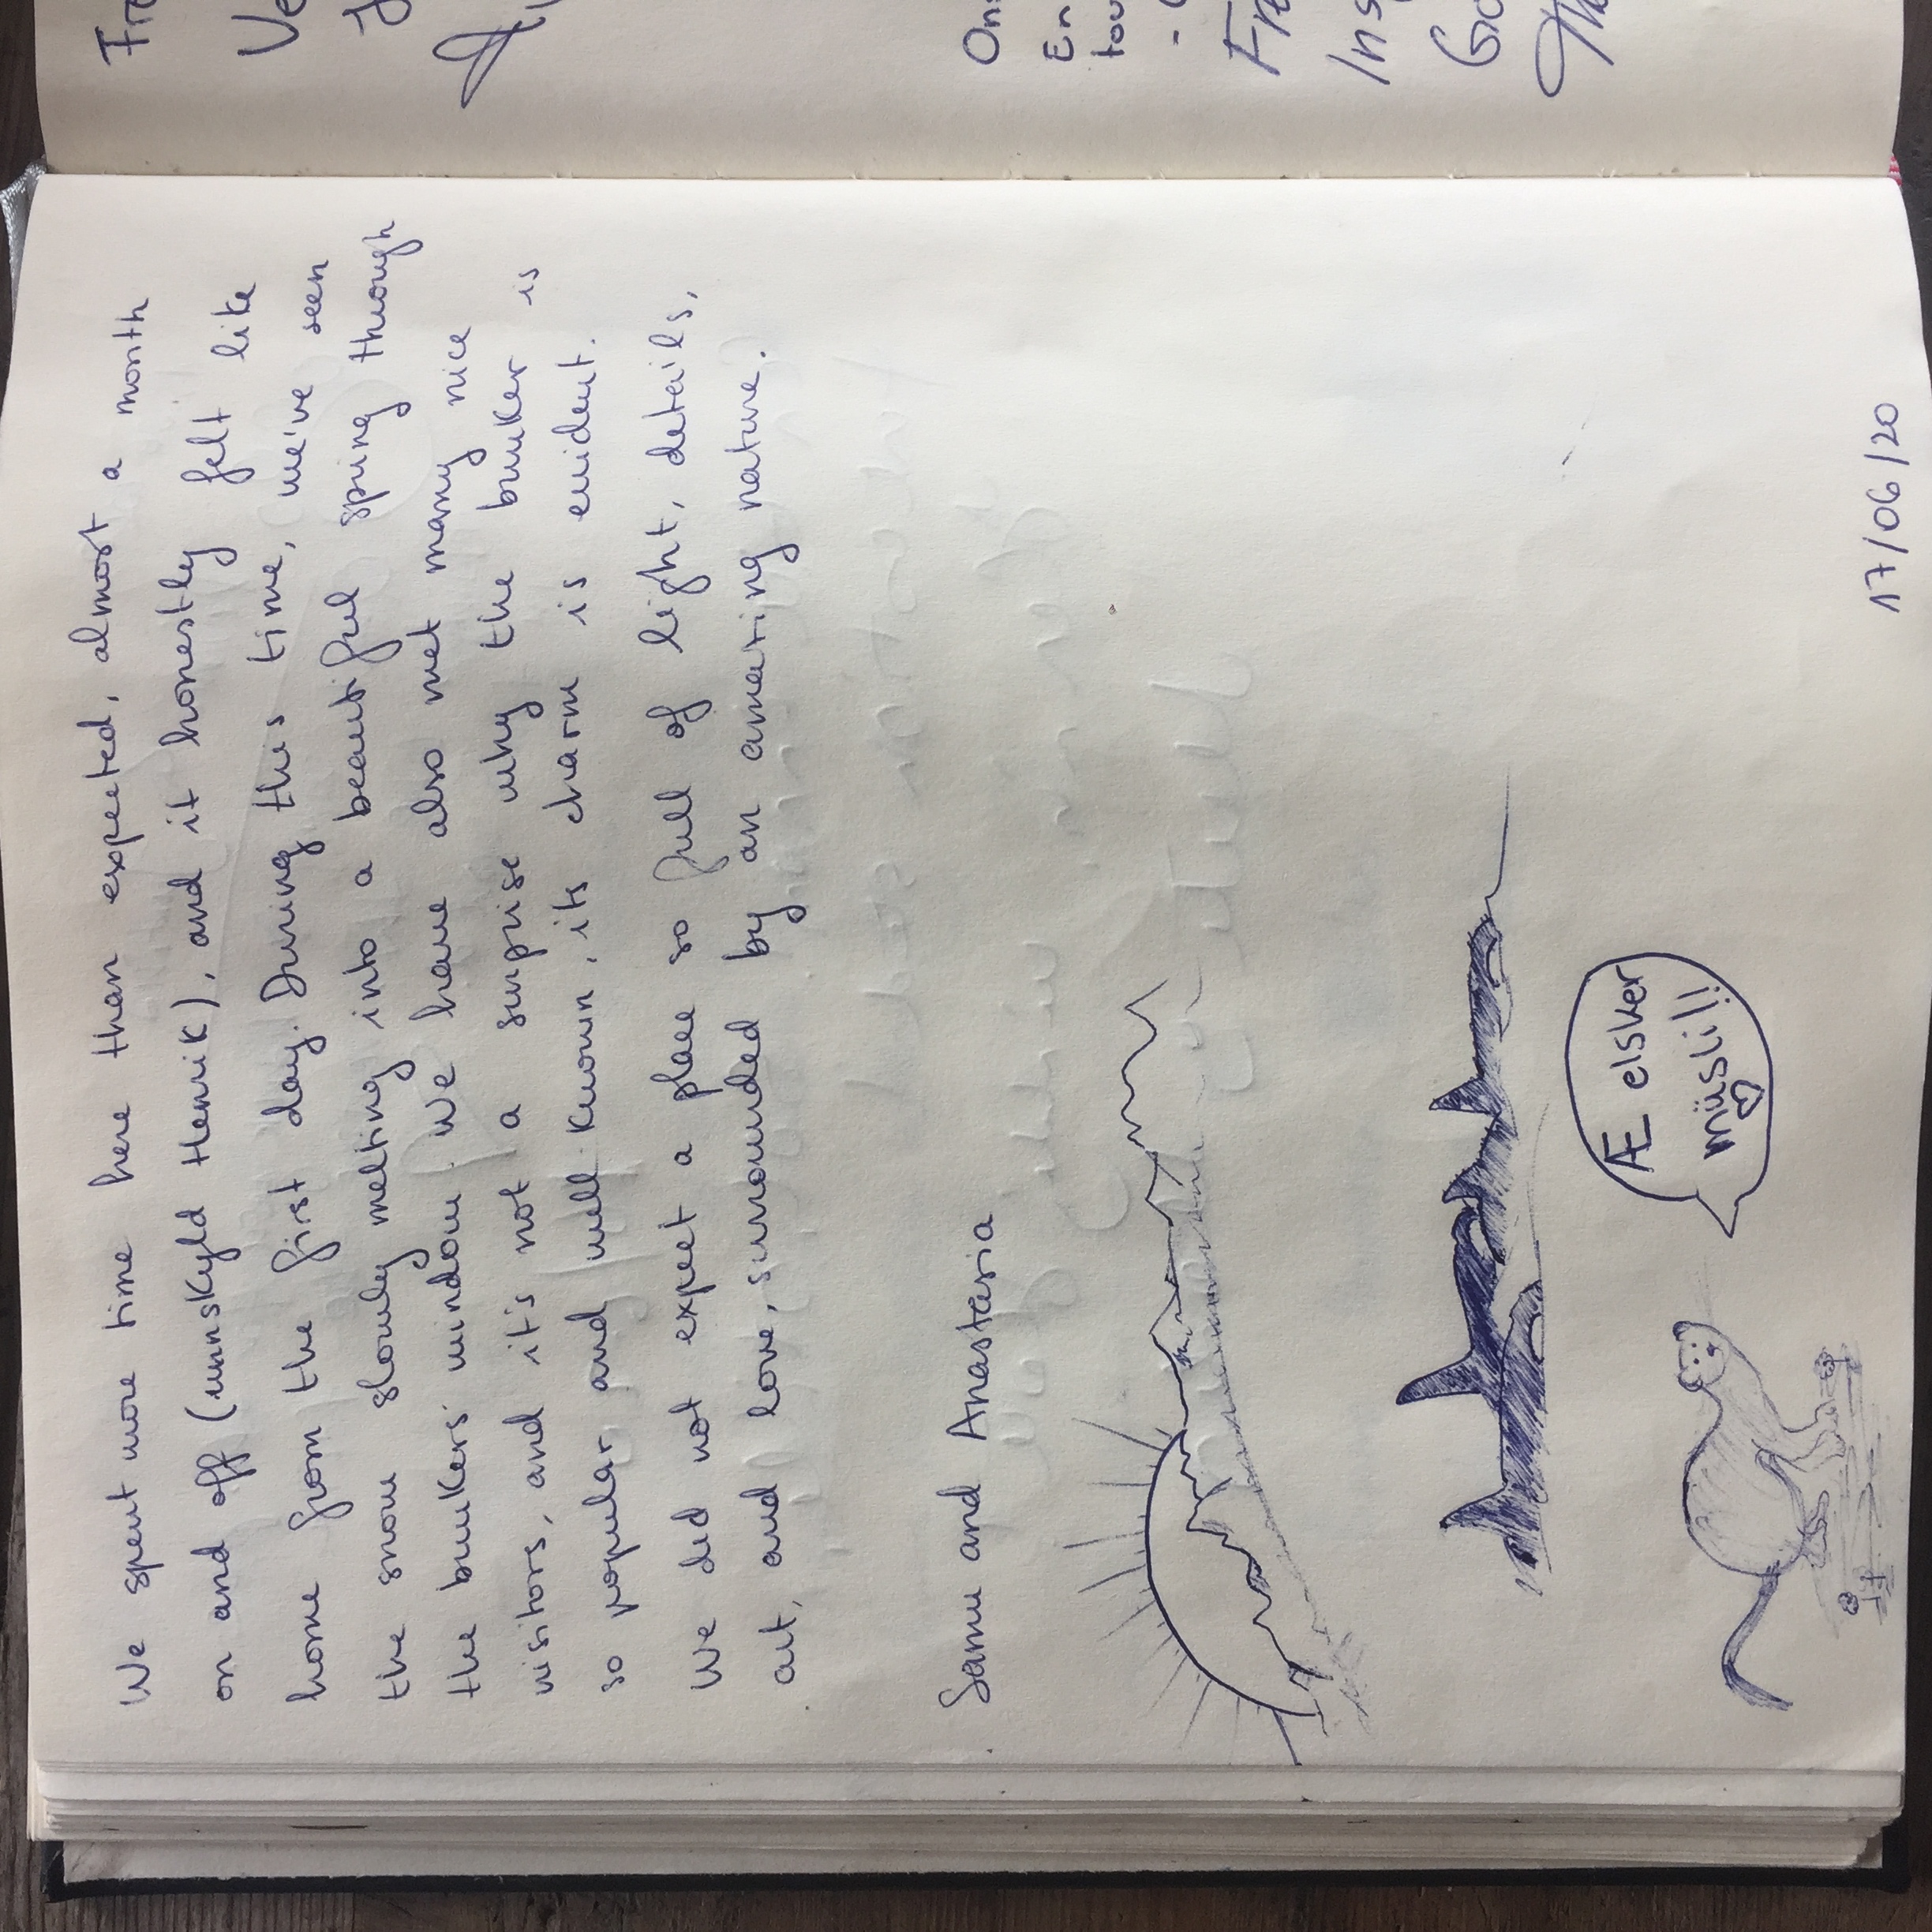 We spent more time here than expected, almost a month
on and off (unnskyld Henrik), and it honestly felt like
home from the first day. During this time, we've seen
the snow slowly melting into a beautiful spring through
the bunkers' window. We have also met many nice
visitors, and it's not a surprise why the bunker is
so popular and well known, its charm is evident.
We did not expect a place so full of light, details,
art, and love, surrounded by an amazing nature.
Samu and Anastasia
Æ elsker
müsli!!
17/06/20
Ons
En
tou
Ins